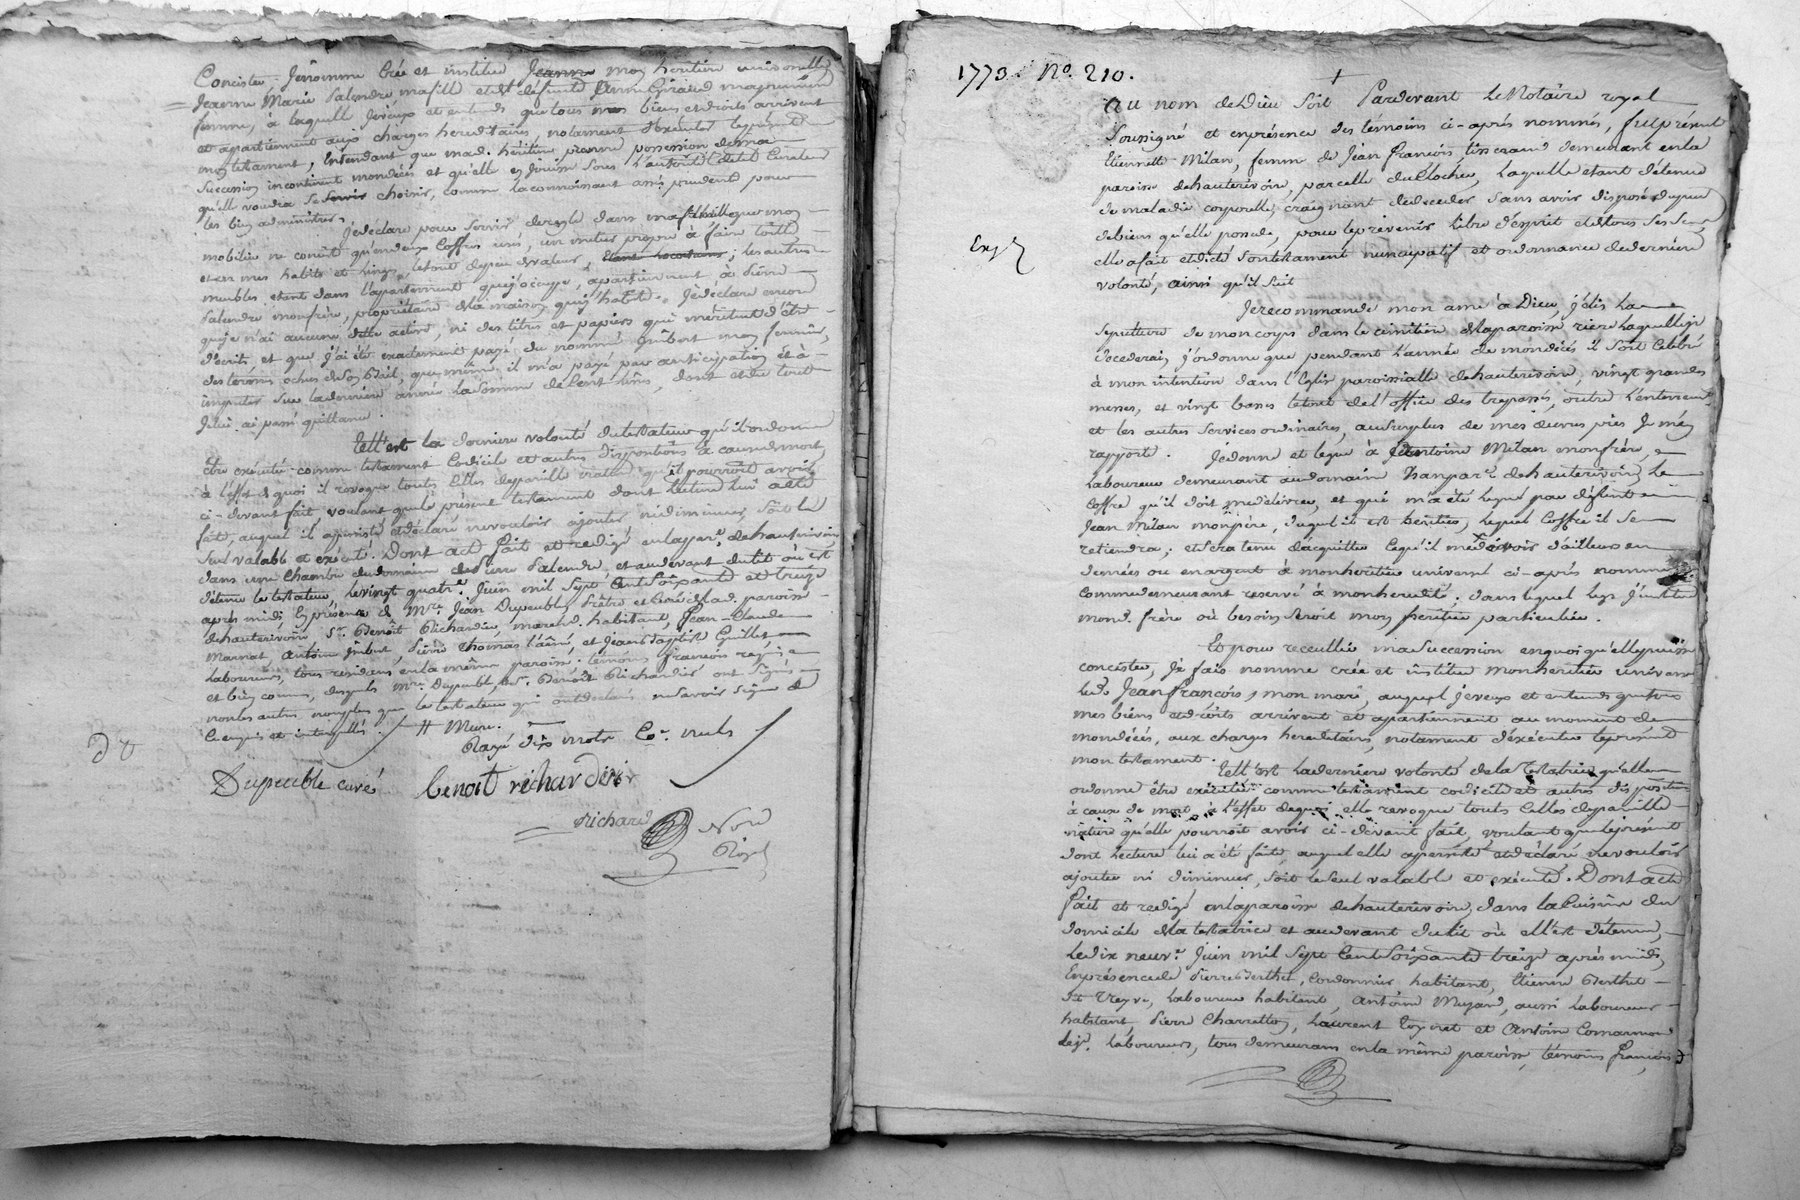 Concister. Je nomme Crée et institue Jeanne mon héritiere universelle
Jeanne Marie Palendre ma fille et de défunte Anne Giraud ma premiere
femme, à laquelle je veux et entends que tous mes biens et droits arrivent
et apartiennent aux charges hereditaires, notament d'éxécuter le présent
mon testament, Entendant que mad. héritiere prenne possession de ma
Succession incontinent mon décès et qu'elle en jouisse sous l'autorité de tel Curateur
qu'elle voudra se servir choisir, comme la connoissant assés prudente pour
les bien administrer.
Je déclare pour servir de regle dans ma famille que mon
mobilier ne concist qu'en deux Coffres unis, un métier propre à faire toille
et en mes habits et linge, le tout de peu de valeur, ; les autres
meubles etant dans l'apartement que j'occupe, apartiennent à Pierre
Palendre mon frère, propriétaire de la maison que j'habite. Je déclare encore
que je n'ai aucune dette active, ni des titres et papiers qui méritent d'être
décrits, et que j'ai été exactement payé du nommé Imbert mon fermier,
des termes échus de son Bail, que même il m'a payé par anticipation et à
imputer sur la derniere année la somme de Cent livres, dont et du tout
Je lui ai passé quittance.
Telle est la derniere volonté du testateur qu'il ordonne
être exécutée comme testament Codicile et autres dispositions à cause de mort,
à l'effet de quoi il revoque toutes Celles de pareille nature qu'il pourroit avoir
ci-devant fait voulant que le présent testament dont lecture lui a été
fait, auquel il a persisté et déclaré ne vouloir ajouter ni diminuer, soit le
seul valable et exécuté. Dont acte fait et redigé en la par.se de hauterivoire
dans une Chambre du domaine dud. Pierre Palendre, et au devant du lit où est
détenu le testateur, le vingt quatre Juin mil sept Cent soixante et treize
après midi, En présence de Mre. Jean Dupeuble, Prêtre et Curé de lad. paroisse
de hauterivoire, Sr. Benoit Richardier, march. habitant, Jean-Claude
Marnat, Antoine Imbert, Pierre Thomas l'ainé, et Jean Baptiste Guillet
Laboureurs, tous residans en la même paroisse, témoins françois requis
et bien connus, desquels Mre. Dupeuble, et Sr. Benoit Richardier ont signé
non les autres non plus que le testateur qui ont déclaré ne savoir signer de
ce enquis et interpellés.
Rayé dix mots Co. nuls
Dupeuble curé benoit richardier
richard
Nore
Royal
1773. No. 210.
Au nom de Dieu soit Pardevant le Notaire royal
Soussigné et en présence des témoins ci-après nommés, fut présent
Etiennette Milan, femme de Jean françois, tisserand demeurant en la
paroisse de hauterivoire, parcelle du Clocher, Laquelle etant détenue
de maladie corporelle, craignant de deceder sans avoir disposé du peu
de biens qu'elle possede, pour le prévenir libre d'esprit et de tous ses sens
elle a fait et dicté son testament nuncupatif et ordonnance de derniere
volonté, ainsi qu'il suit
Exp.
Je recommande mon ame à Dieu, j'élis la
sepulture de mon corps dans le cimetiere de la paroisse riere laquelle je
decederai, j'ordonne que pendant l'année de mon décès il soit Celebré
à mon intention dans l'Eglise paroissialle de hauterivoire, vingt grandes
messes, et vingt basses le tout de l'office des trepassés, outre l'enterrem.t
et les autres services ordinaires, au surplus de mes œuvres pies Je m'en
rapporte. Je donne et legue à Antoine Milan mon frère,
Laboureur demeurant au domaine de hauterivoire, Le
Coffre qu'il doit me délivrer, et qui m'a été legué par défunt
Jean Milan mon père, duquel il est heritier, lequel Coffre il se
retiendra; et sera tenu d'acquitter ce qu'il me devoir d'ailleurs en
denrées ou en argent à mon heritier universel ci-après nommé
comme demeurant reservé à mon heredité; dans lequel legs j'institue
mond. frère où besoin seroit mon heritier particulier.
Et pour receuillir ma succession en quoi qu'elle puisse
concister, Je fais nomme crée et institue mon heritier univers
led. Jean françois, mon mari, auquel je veux et entends que tous
mes biens et droits arrivent et apartiennent au moment de
mon décès, aux charges hereditaires, notament d'éxécuter le présent
mon testament.
Telle est la derniere volonté de la testatrice qu'elle
ordonne être exécutée comme testament codicile et autres disposition
à cause de mort, à l'effet de quoi elle revoque toutes Celles de pareille
nature qu'elle pourroit avoir ci-devant fait, voulant que le présent
dont Lecture lui a été faite, auquel elle a persisté et déclaré ne vouloir
ajouter ni diminuer, soit le seul valable et exécuté. Dont acte
fait et redigé en la paroisse de hauterivoire, dans la Cuisine du
domicile de la testatrice et au devant du lit où elle est détenue,
Le dix neuv.e Juin mil sept Cent soixante treize après midi,
En présence de Pierre Berthet, Cordonnier habitant, Etienne Berthet
dit Veyre, Laboureur habitant, Antoine Muzard, aussi Laboureur
habitant, Pierre Charretton, Laurent et Antoine Comarmond
le je. Laboureurs, tous demeurans en la même paroisse, témoins françois